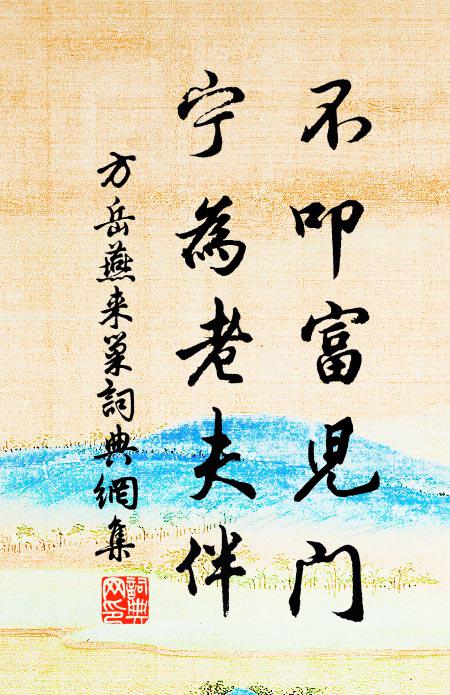 不叩富児门
宁為老夫伴
方岳燕来巢詞典網集
詞典网印